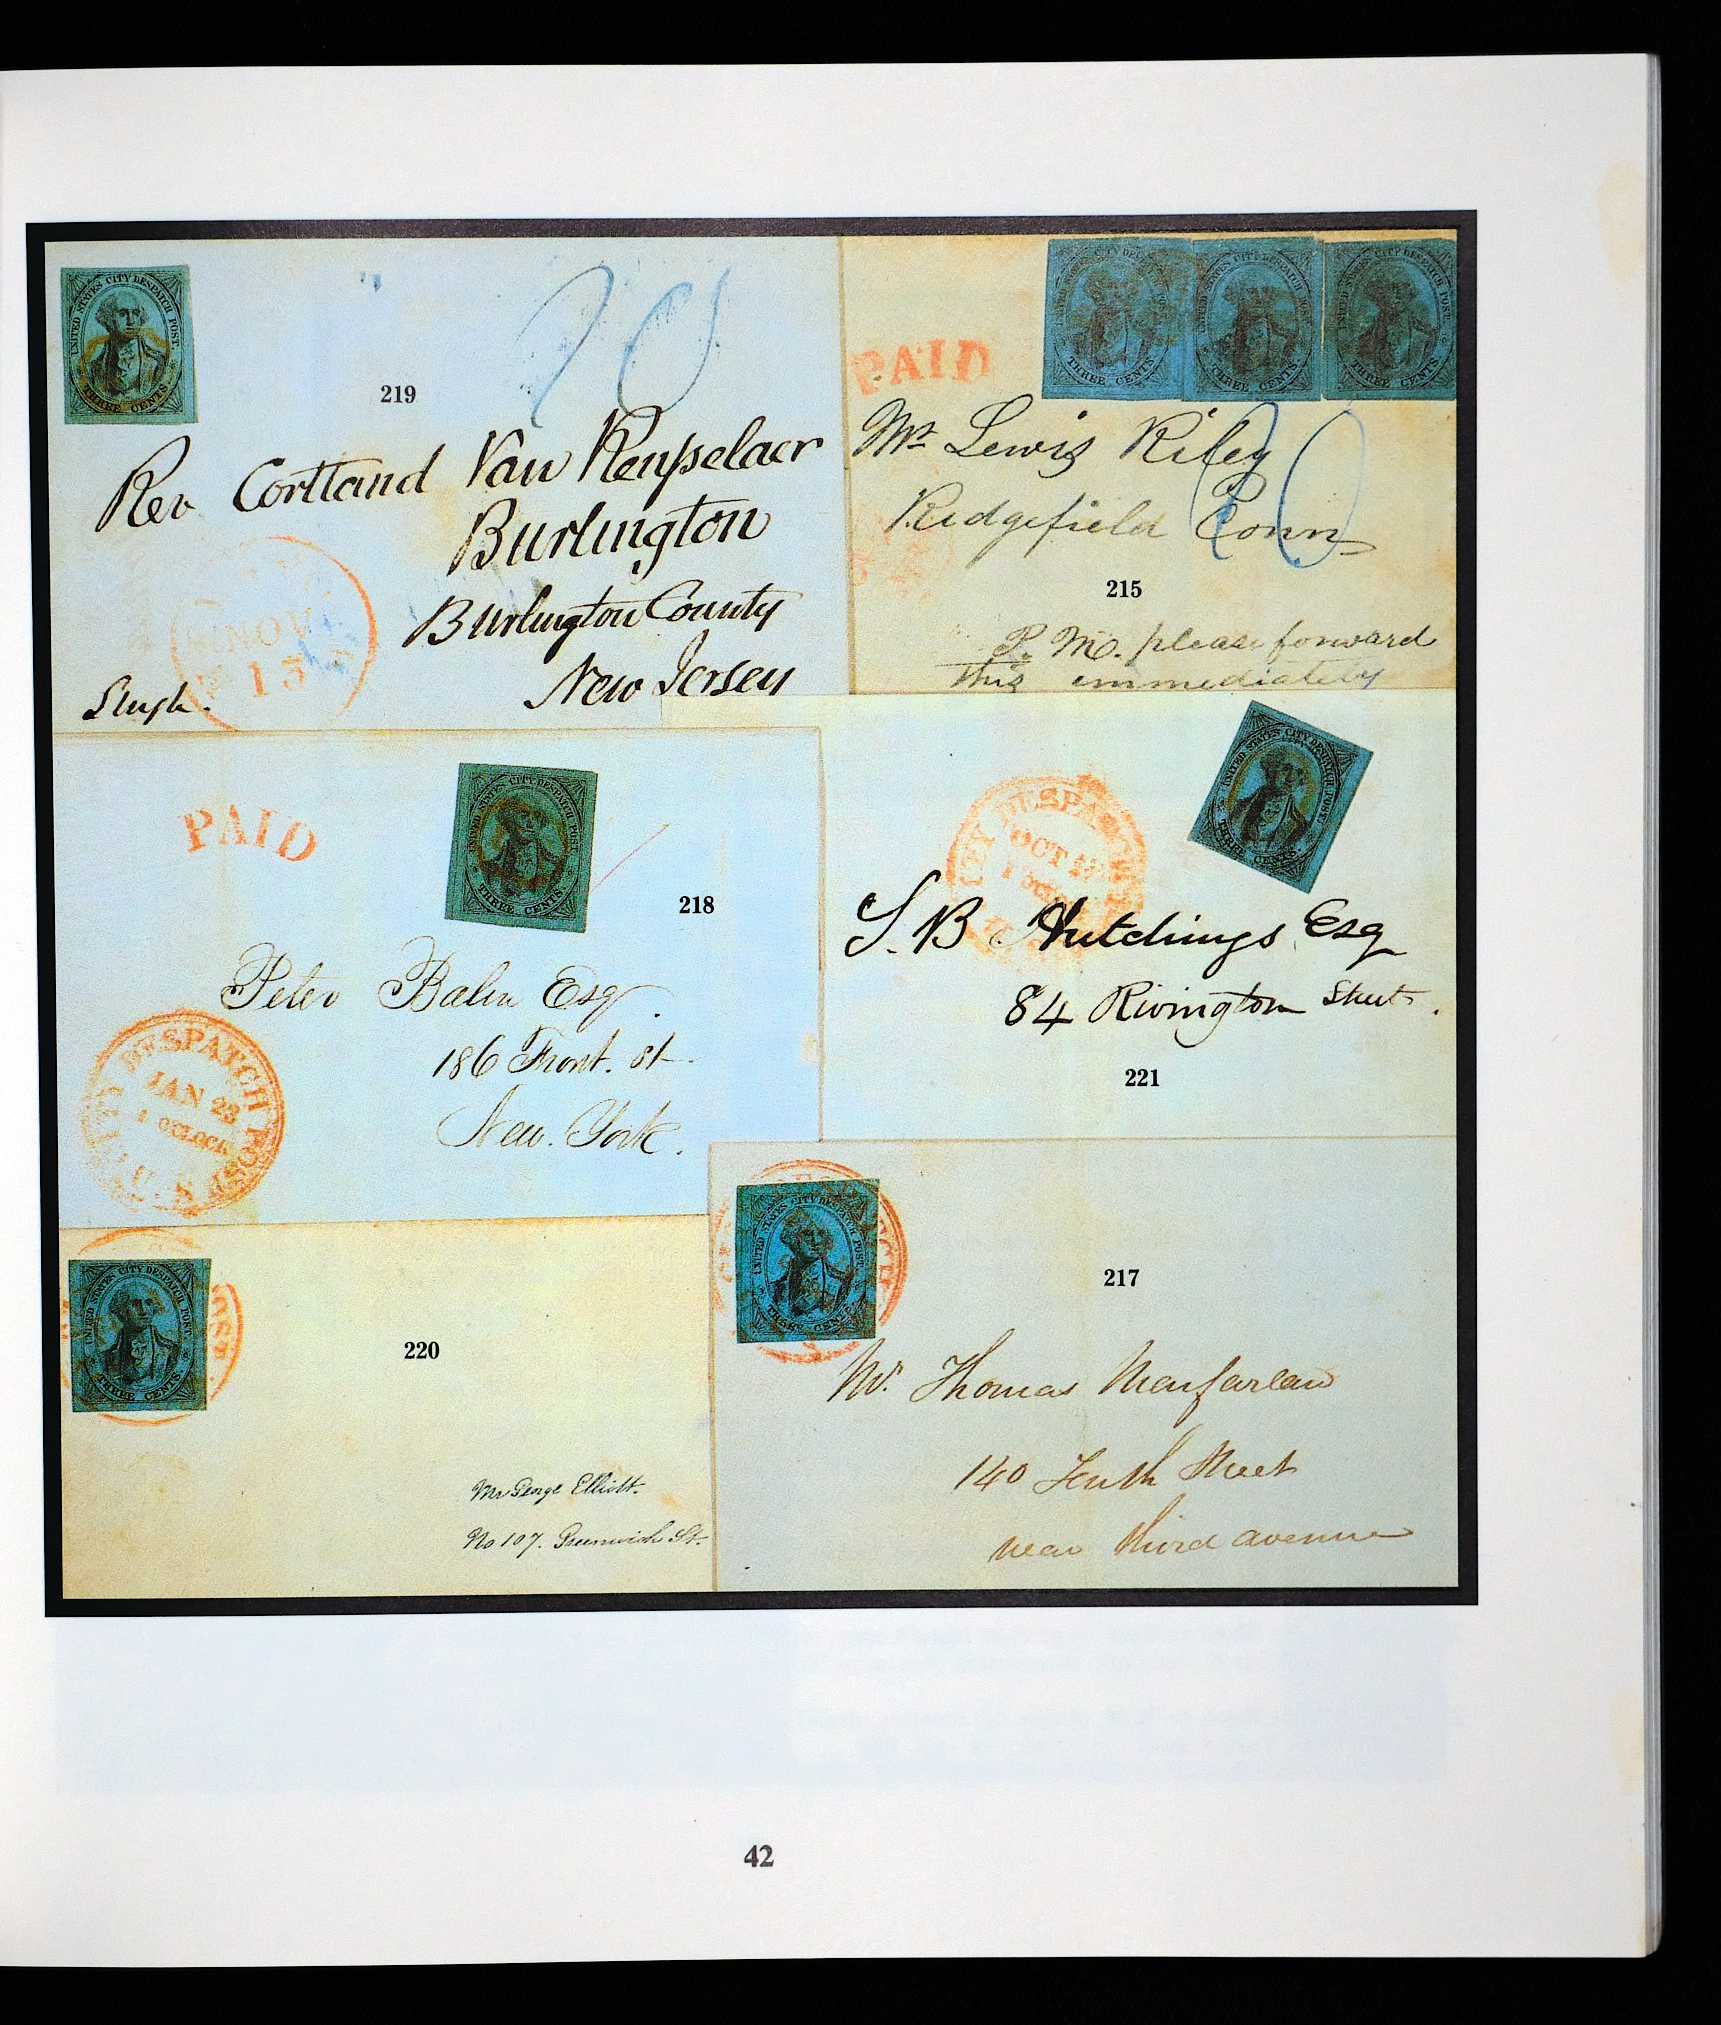 UNITED STATES CITY DESPATCH POST.
THREE CENTS
219
20
Rev Cortland Van Renfselaer
Burlington
Burlington County
New Jersey
NOV
13
PAID
UNITED STATES CITY DESPATCH POST.
THREE CENTS
THREE CENTS
THREE CENTS
Mr. Lewis Riley
Ridgefield Conn
10
215
P. M. please forward
this immediately
PAID
UNITED STATES CITY DESPATCH POST.
THREE CENTS
218
Peter Balen Esq.
186 Front. st.
New. York.
CITY DESPATCH POST
JAN 23
1 O'CLOCK
U.S.
UNITED STATES CITY DESPATCH POST.
THREE CENTS.
CITY DESPATCH
OCT 27
S. B. Hutchings Esq
84 Rivington Street.
221
UNITED STATES CITY DESPATCH POST.
THREE CENTS
220
Mr George Elliott.
No 107. Greenwich St.
UNITED STATES CITY DESPATCH POST.
THREE CENTS
217
Mr. Thomas
140 Tenth Street
near third avenue
42